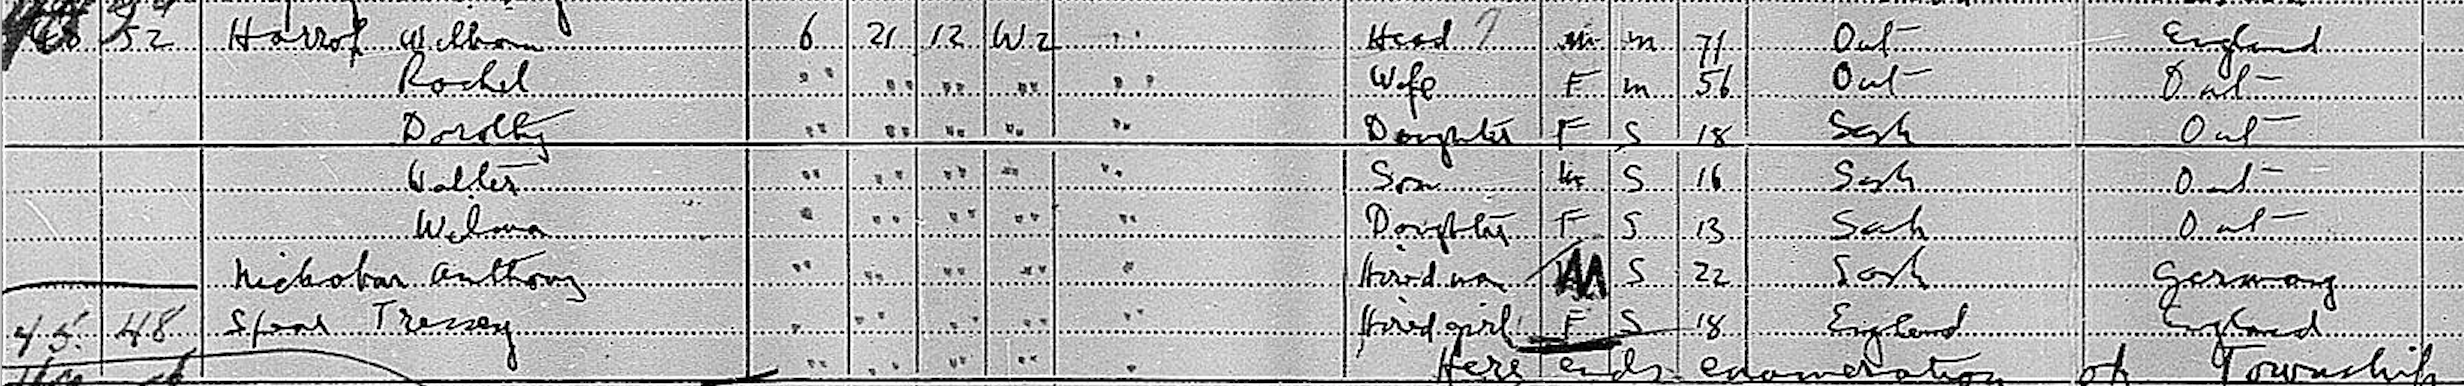 52 Harrop William 6 21 12 W2 " Head m m 71 Ont England
Rachel " " " " " Wife F m 56 Ont Ont
Dorothy " " " " " Daughter F S 18 Sask Ont
Walter " " " " " Son m S 16 Sask Ont
Wilma " " " " " Daughter F S 13 Sask Ont
Anthony " " " " " Hired man M S 22 Sask Germany
45 48 Tressey " " " " " Hired girl F S 18 England England
" " " " " Here ends enumeration of Township